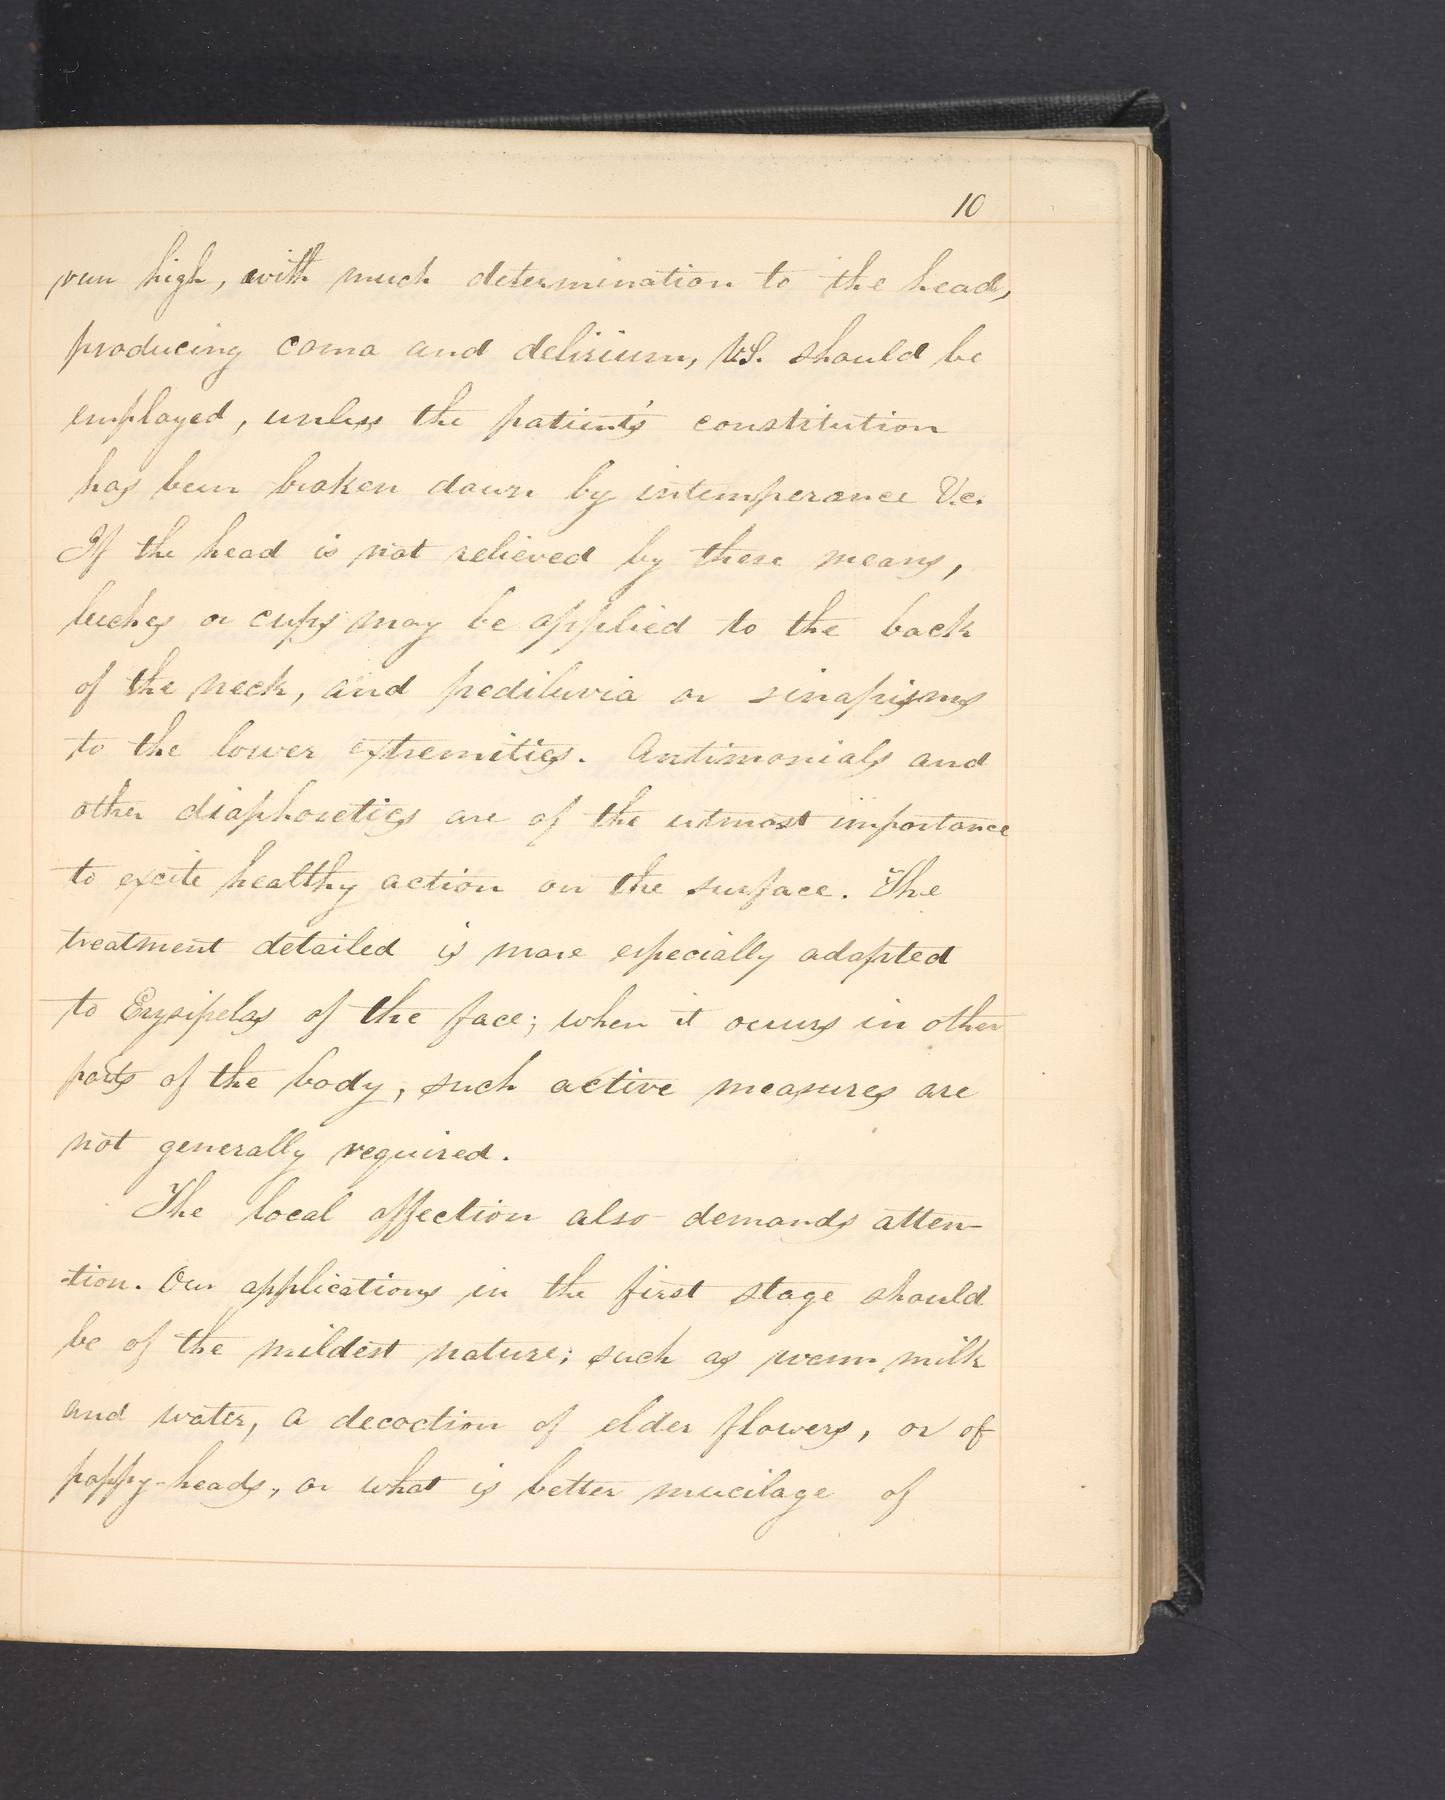 10
run high, with much determination to the head,
producing coma and delirium, V.S. should be
employed, unless the patient's constitution
has been broken down by intemperance &c.
If the head is not relieved by these means,
leeches or cups may be applied to the back
of the neck, and pediluvia or sinapisms
to the lower extremities. Antimonials and
other diaphoretics are of the utmost importance
to excite healthy action on the surface. The
treatment detailed is more especially adapted
to Erysipelas of the face; when it occurs in other
parts of the body, such active measures are
not generally required.
The local affection also demands atten-
-tion. Our applications in the first stage should
be of the mildest nature; such as warm milk
and water, a decoction of elder flowers, or of
poppy-heads, or what is better mucilage of